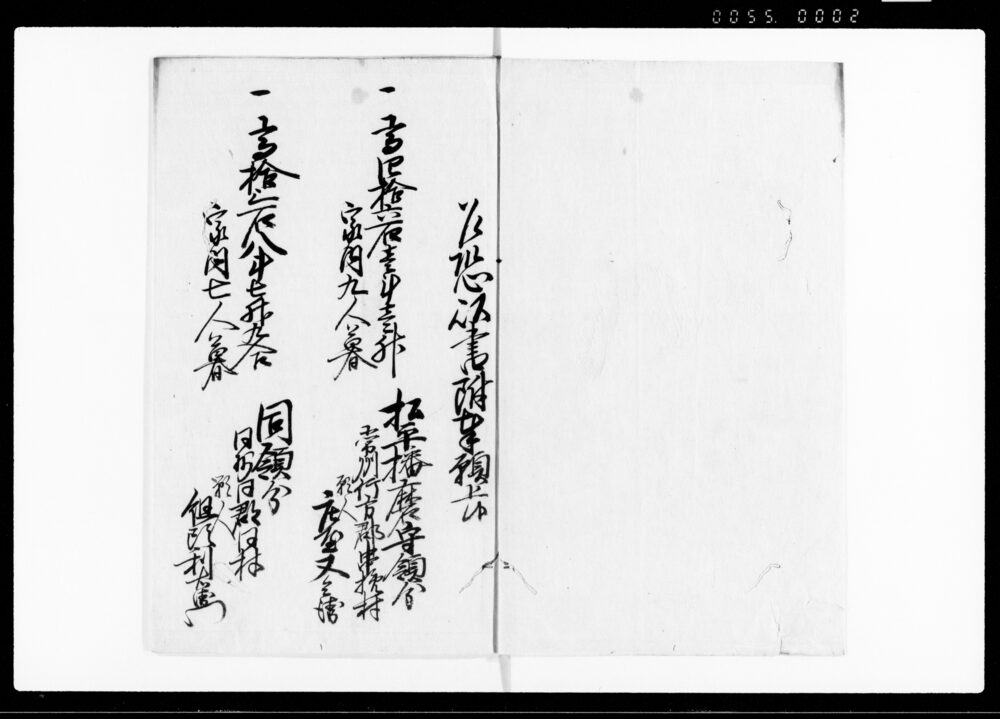 0055. 0002
乍恐以書附奉願上候
一 高四拾六石壱斗壱升
家内九人暮
松平播磨守領分
常州行方郡串挽村
願人
庄屋又兵衛
一 高拾三石八斗七升九合
家内七人暮
同領分
同州同郡同村
願人
組頭利左衛門